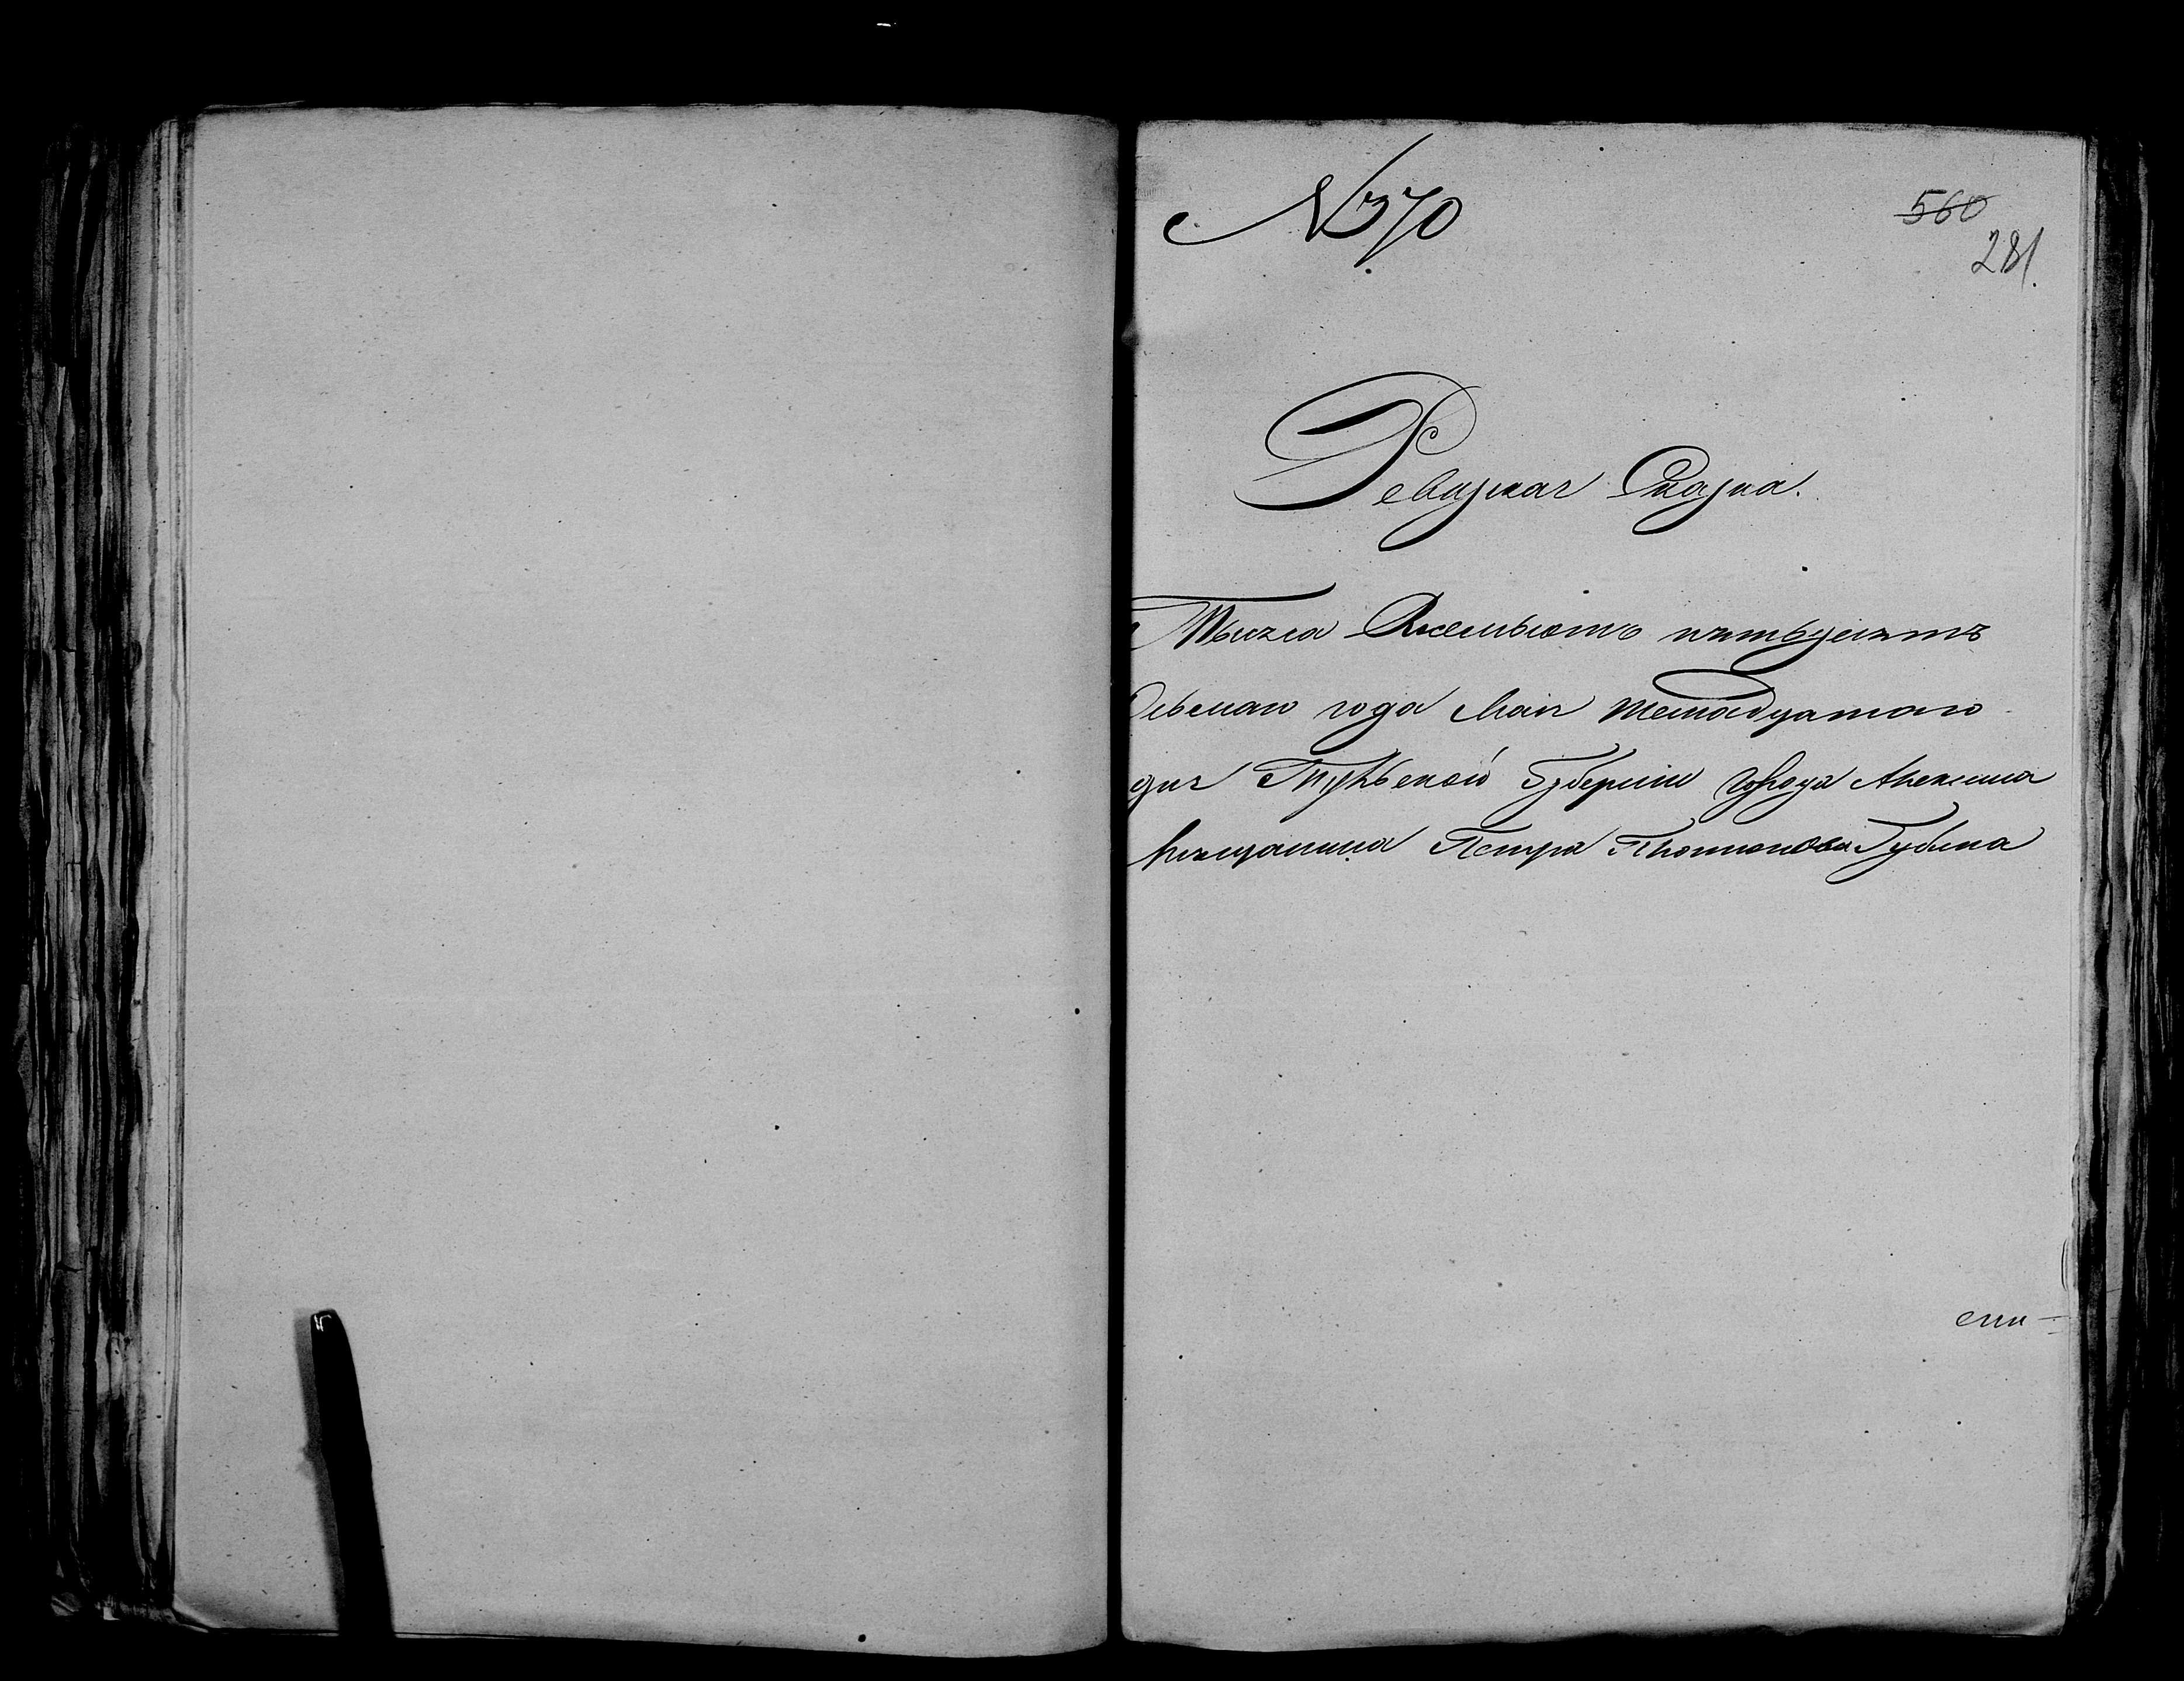 №370
560
281.
Ревизская Сказка.
Тысяча Восемьсотъ пятьдесятъ
Осьмаго года Маія шестнадцатаго
дня Тульской Губерніи города Алексина
мѣщанина Петра Губина